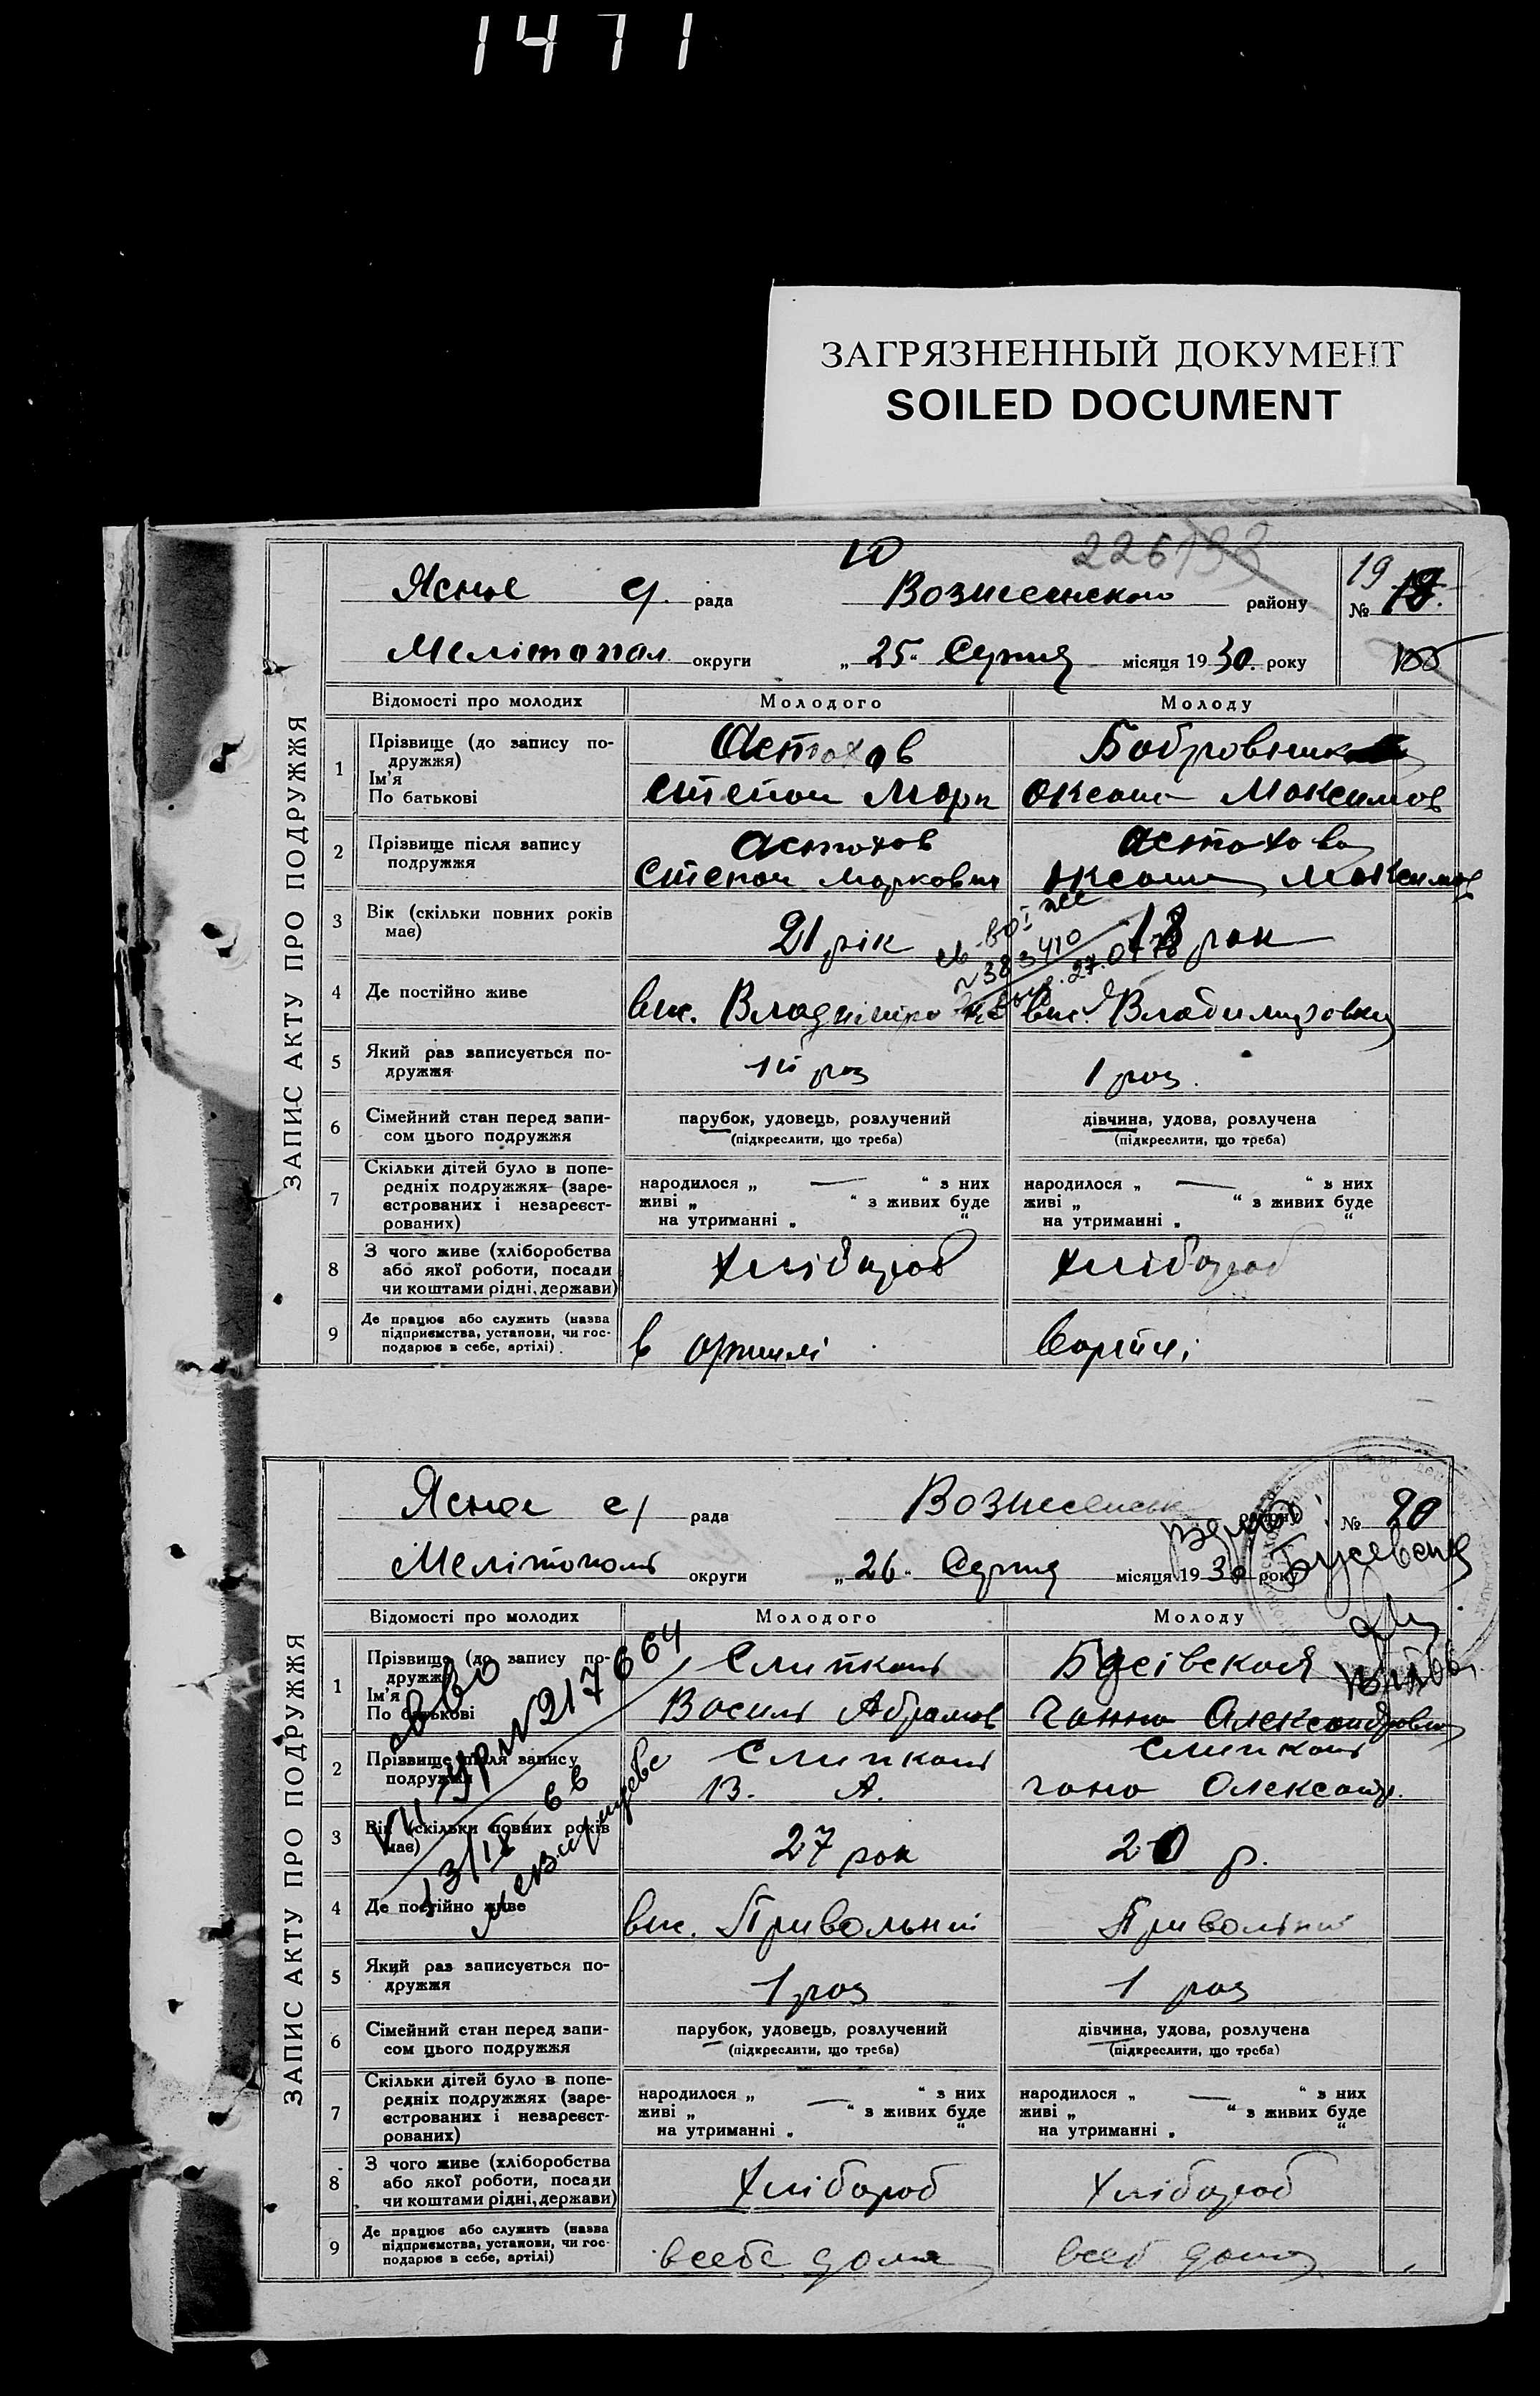 1471
ЗАГРЯЗНЕННЫЙ ДОКУМЕНТ
SOILED DOCUMENT
10
226
Ясная с/ рада Вознесенского району
19
№
Мелітопол округи „ 25 “ Серпня місяця 1930 року
ЗАПИС АКТУ ПРО ПОДРУЖЖЯ
Відомості про молодих Молодого Молоду
1 Прізвище (до запису подружжя)
Ім'я
По батькові
Астахов
Степан Марк
Бобровник
Оксана Максимов
2 Прізвище після запису подружжя
Астахов
Степан Маркович
Астахова
Оксана Максимов
3 Вік (скільки повних років має) 21 рік 18 рок
№ 383410
4 Де постійно живе
вис. Владиміровка
вис. Владимировка
5 Який раз записується подружжя 1й раз 1 раз.
6 Сімейний стан перед записом цього подружжя
парубок, удовець, розлучений
(підкреслити, що треба)
дівчина, удова, розлучена
(підкреслити, що треба)
7 Скільки дітей було в попередніх подружжях (зареєстрованих і незареєстрованих)
народилося „ — “ з них
живі „ “ з живих буде
на утриманні „ “
народилося „ — “ з них
живі „ “ з живих буде
на утриманні „ “
8 З чого живе (хліборобства або якої роботи, посади чи коштами рідні, держави)
Хлібороб Хлібороб
9 Де працює або служить (назва підприємства, установи, чи господарює в себе, артілі)
в артилі
в артілі
ЗАПИС АКТУ ПРО ПОДРУЖЖЯ
Ясная с/ рада Вознесенськ району
№ 20
Мелітополь округи „ 26 “ Серпня місяця 1930 року
Відомості про молодих Молодого Молоду
1 Прізвище (до запису подружжя)
Ім'я
По батькові
Слипкань
Василь Абрамов
Бусівская
Ганна Александровна
№ 217664
2 Прізвище після запису подружжя
Слипкань
В. А.
Слипкань
Гана Олександ.
3 Вік (скільки повних років має) 27 рок 20 р.
4 Де постійно живе
вис. Привольний
Привольний
5 Який раз записується подружжя 1 раз 1 раз
6 Сімейний стан перед записом цього подружжя
парубок, удовець, розлучений
(підкреслити, що треба)
дівчина, удова, розлучена
(підкреслити, що треба)
7 Скільки дітей було в попередніх подружжях (зареєстрованих і незареєстрованих)
народилося „ — “ з них
живі „ “ з живих буде
на утриманні „ “
народилося „ — “ з них
живі „ “ з живих буде
на утриманні „ “
8 З чого живе (хліборобства або якої роботи, посади чи коштами рідні, держави)
Хлібороб Хлібороб
9 Де працює або служить (назва підприємства, установи, чи господарює в себе, артілі)
всебе дома
всеб дома